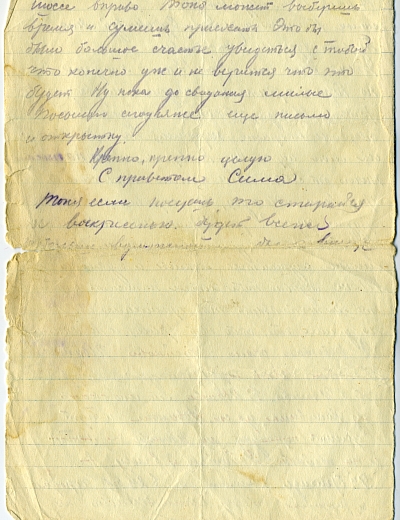 шоссе вправо. Тоня может выберишь
время и сумеешь приехать Это бы
было большое счастье увидеться с тобой
что конечно уж и не верится что это
будет Ну пока до свидания милые
Посылаю сегодня же еще письмо
и открытку.
Крепко, крепко целую
С приветом Сима
Тоня если поедешь то старайся
воскресенью. будет